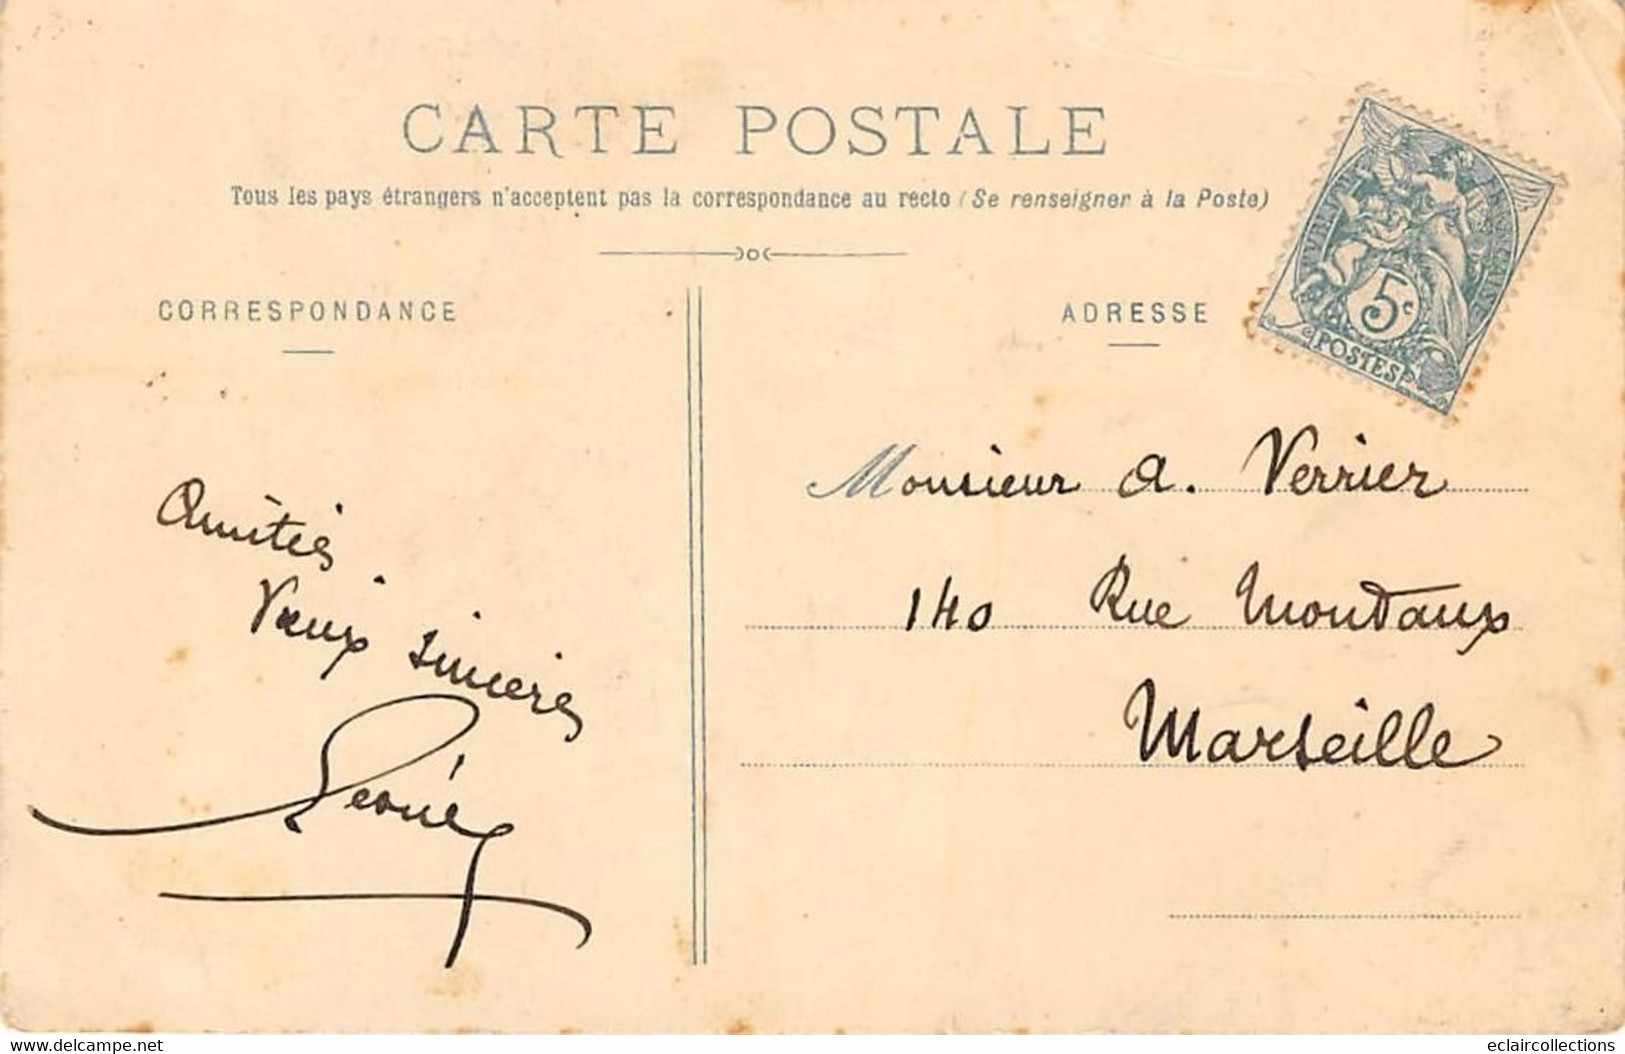 CARTE POSTALE
Tous les pays étrangers n'acceptent pas la correspondance au recto (Se renseigner à la Poste)
CORRESPONDANCE
Amitiés
Vœux sincères
ADRESSE
RÉPUBLIQUE FRANÇAISE
5c
POSTES
Monsieur A. Verrier
140 Rue Mondaux
Marseille
www.delcampe.net
eclaircollections